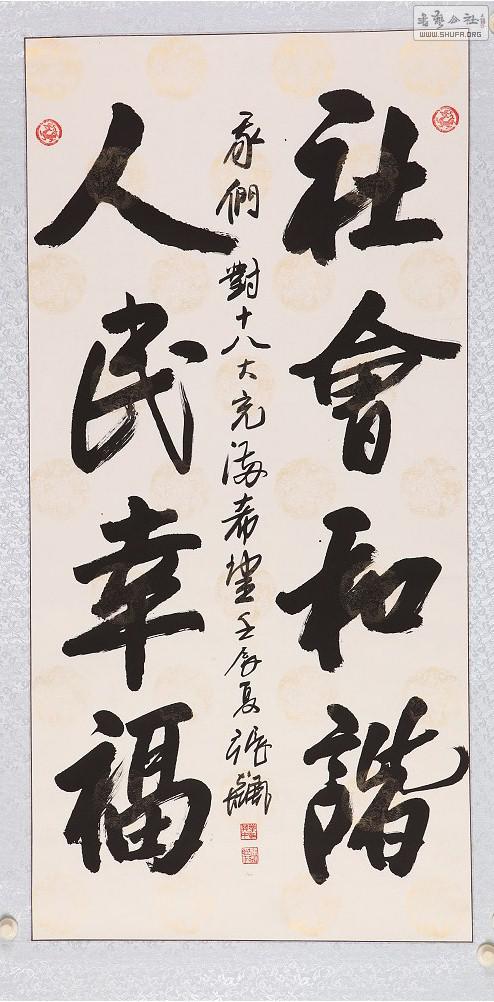 社會和諧
我們對十八大充滿希望壬辰夏張飚
人民幸福
書藝公社
WWW.SHUFA.ORG